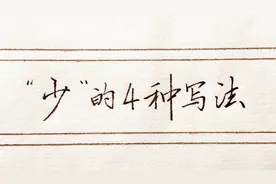 “少”的4种写法